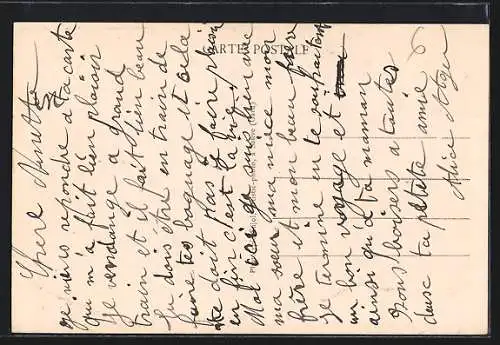 CARTE POSTALE
Chere Ninette
je viens repondre a ta carte
qui m'a fait bien plaisir
je vendange a grand
train et il fait bien beau
tu dois être en train de
faire tes bagages et cela
ne doit pas te faire plaisir
enfin c'est la vie
Moi ici je suis bien avec
ma sœur ma niece mon
frère et mon beau frère
je termine en te souhaitant
un bon voyage et
ainsi qu'à ta maman
gros baisers a toutes
deux ta petite amie
Alice Alger